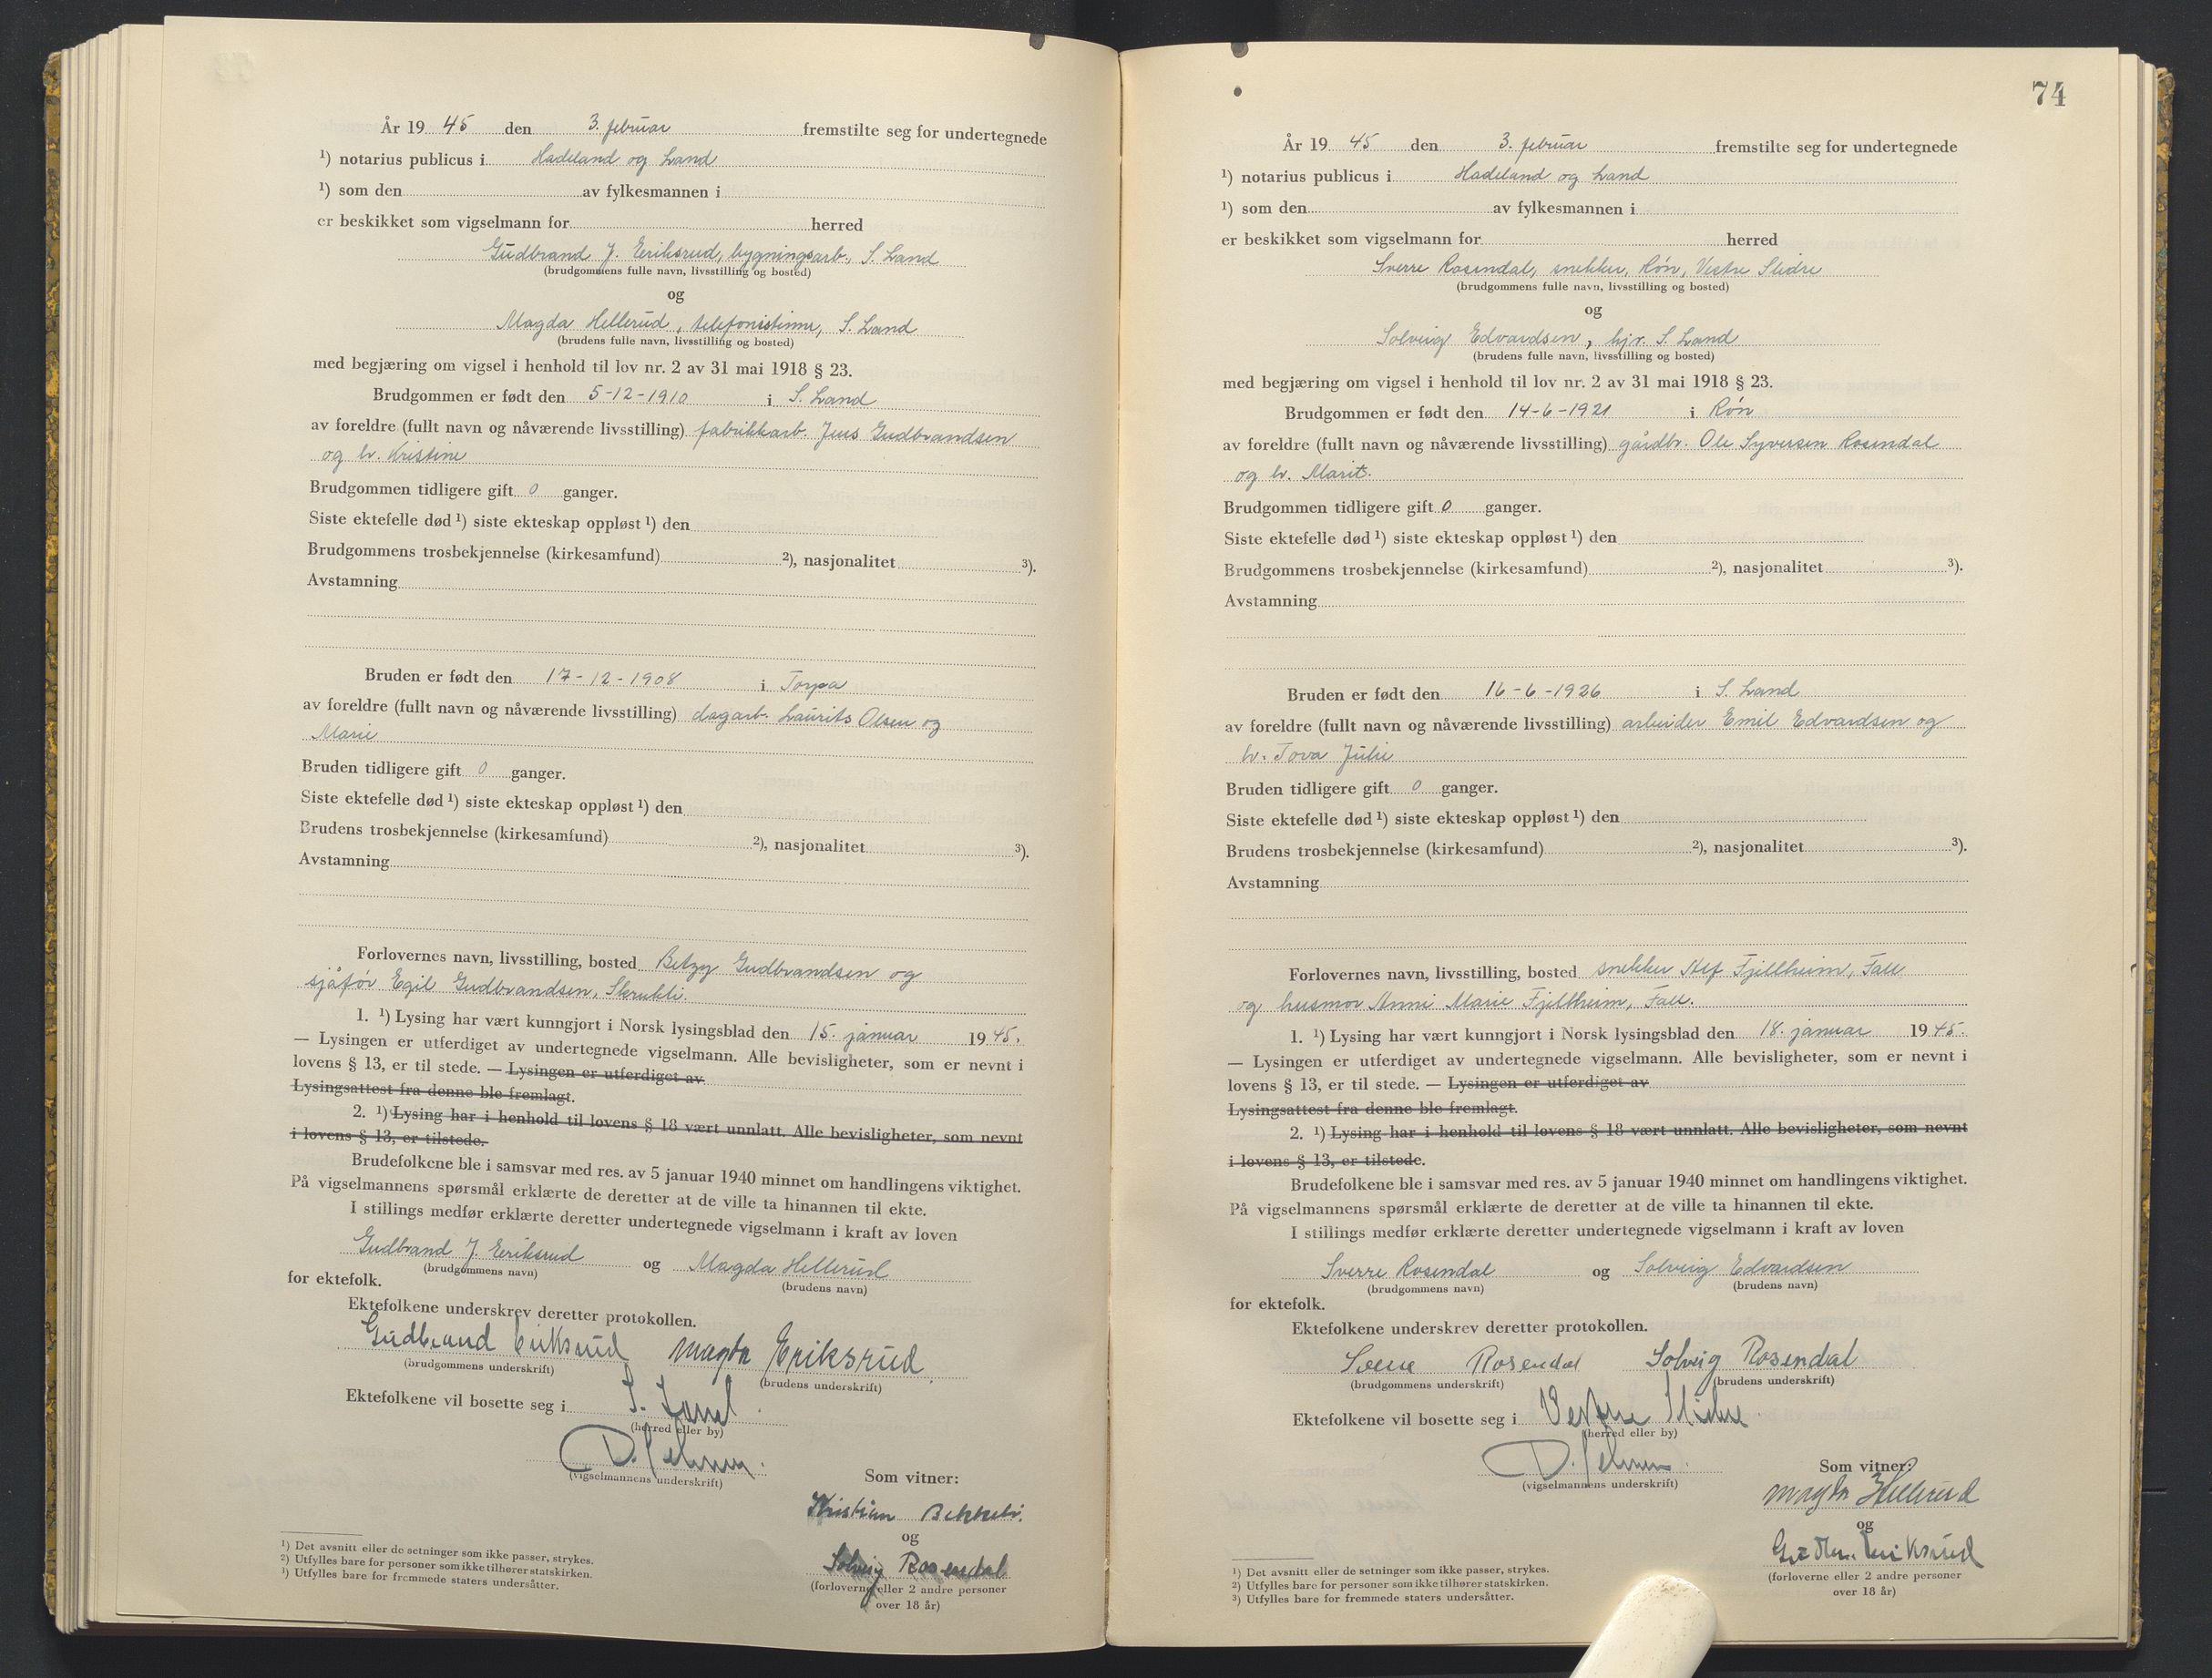 År 19 45 den 3. februar fremstilte seg for undertegnede
¹) notarius publicus i Hadeland og Land
¹) som den av fylkesmannen i
er beskikket som vigselmann for herred
Gudbrand J. Eriksrud, bygningsarb., S. Land
(brudgommens fulle navn, livsstilling og bosted)
og
Magda Hellerud, telefonistinne, S. Land
(brudens fulle navn, livsstilling og bosted)
med begjæring om vigsel i henhold til lov nr. 2 av 31 mai 1918 § 23.
Brudgommen er født den 5-12-1910 i S. Land
av foreldre (fullt navn og nåværende livsstilling) fabrikkarb. Jens Gudbrandsen
og hr. Kristine
Brudgommen tidligere gift 0 ganger.
Siste ektefelle død ¹) siste ekteskap oppløst ¹) den
Brudgommens trosbekjennelse (kirkesamfund) ²), nasjonalitet ³).
Avstamning
Bruden er født den 17-12-1908 i Torpa
av foreldre (fullt navn og nåværende livsstilling) dagarb. Laurits Olsen og
Marie
Bruden tidligere gift 0 ganger.
Siste ektefelle død ¹) siste ekteskap oppløst ¹) den
Brudens trosbekjennelse (kirkesamfund) ²), nasjonalitet ³).
Avstamning
Forlovernes navn, livsstilling, bosted Betzy Gudbrandsen og
sjåfør Egil Gudbrandsen, Skrukli.
1. ¹) Lysing har vært kunngjort i Norsk lysingsblad den 15. januar 19 45.
— Lysingen er utferdiget av undertegnede vigselmann. Alle bevisligheter, som er nevnt i
lovens § 13, er til stede. — Lysingen er utferdiget av
Lysingsattest fra denne ble fremlagt.
2. ¹) Lysing har i henhold til lovens § 18 vært unnlatt. Alle bevisligheter, som nevnt
i lovens § 13, er tilstede.
Brudefolkene ble i samsvar med res. av 5 januar 1940 minnet om handlingens viktighet.
På vigselmannens spørsmål erklærte de deretter at de ville ta hinannen til ekte.
I stillings medfør erklærte deretter undertegnede vigselmann i kraft av loven
Gudbrand J. Eriksrud og Magda Hellerud
(brudgommens navn) (brudens navn)
for ektefolk.
Ektefolkene underskrev deretter protokollen.
Gudbrand Eriksrud Magda Eriksrud
(brudgommens underskrift) (brudens underskrift)
Ektefolkene vil bosette seg i S. Land
(herred eller by)
(vigselmannens underskrift)
Som vitner:
Kristian
og
Solveig Rosendal
(forloverne eller 2 andre personer
over 18 år)
¹) Det avsnitt eller de setninger som ikke passer, strykes.
²) Utfylles bare for personer som ikke tilhører statskirken.
³) Utfylles bare for fremmede staters undersåtter.
74
År 19 45 den 3. februar fremstilte seg for undertegnede
¹) notarius publicus i Hadeland og Land
¹) som den av fylkesmannen i
er beskikket som vigselmann for herred
Sverre Rosendal, snekker, Røn, Vestre Slidre
(brudgommens fulle navn, livsstilling og bosted)
og
Solveig Edvardsen, hjv. S. Land
(brudens fulle navn, livsstilling og bosted)
med begjæring om vigsel i henhold til lov nr. 2 av 31 mai 1918 § 23.
Brudgommen er født den 14-6-1921 i Røn
av foreldre (fullt navn og nåværende livsstilling) gårdbr. Ole Syversen Rosendal
og hr. Marit.
Brudgommen tidligere gift 0 ganger.
Siste ektefelle død ¹) siste ekteskap oppløst ¹) den
Brudgommens trosbekjennelse (kirkesamfund) ²), nasjonalitet ³).
Avstamning
Bruden er født den 16-6-1926 i S. Land
av foreldre (fullt navn og nåværende livsstilling) arbeider Emil Edvardsen og
hr. Tova Julie
Bruden tidligere gift 0 ganger.
Siste ektefelle død ¹) siste ekteskap oppløst ¹) den
Brudens trosbekjennelse (kirkesamfund) ²), nasjonalitet ³).
Avstamning
Forlovernes navn, livsstilling, bosted snekker Alf Fjellheim, Fall
og husmor Anni Marie Fjellheim, Fall.
1. ¹) Lysing har vært kunngjort i Norsk lysingsblad den 18. januar 19 45.
— Lysingen er utferdiget av undertegnede vigselmann. Alle bevisligheter, som er nevnt i
lovens § 13, er til stede. — Lysingen er utferdiget av
Lysingsattest fra denne ble fremlagt.
2. ¹) Lysing har i henhold til lovens § 18 vært unnlatt. Alle bevisligheter, som nevnt
i lovens § 13, er tilstede.
Brudefolkene ble i samsvar med res. av 5 januar 1940 minnet om handlingens viktighet.
På vigselmannens spørsmål erklærte de deretter at de ville ta hinannen til ekte.
I stillings medfør erklærte deretter undertegnede vigselmann i kraft av loven
Sverre Rosendal og Solveig Edvardsen
(brudgommens navn) (brudens navn)
for ektefolk.
Ektefolkene underskrev deretter protokollen.
Sverre Rosendal Solveig Rosendal
(brudgommens underskrift) (brudens underskrift)
Ektefolkene vil bosette seg i Vestre Slidre
(herred eller by)
(vigselmannens underskrift)
Som vitner:
Magda Hellerud
og
Eriksrud
(forloverne eller 2 andre personer
over 18 år)
¹) Det avsnitt eller de setninger som ikke passer, strykes.
²) Utfylles bare for personer som ikke tilhører statskirken.
³) Utfylles bare for fremmede staters undersåtter.